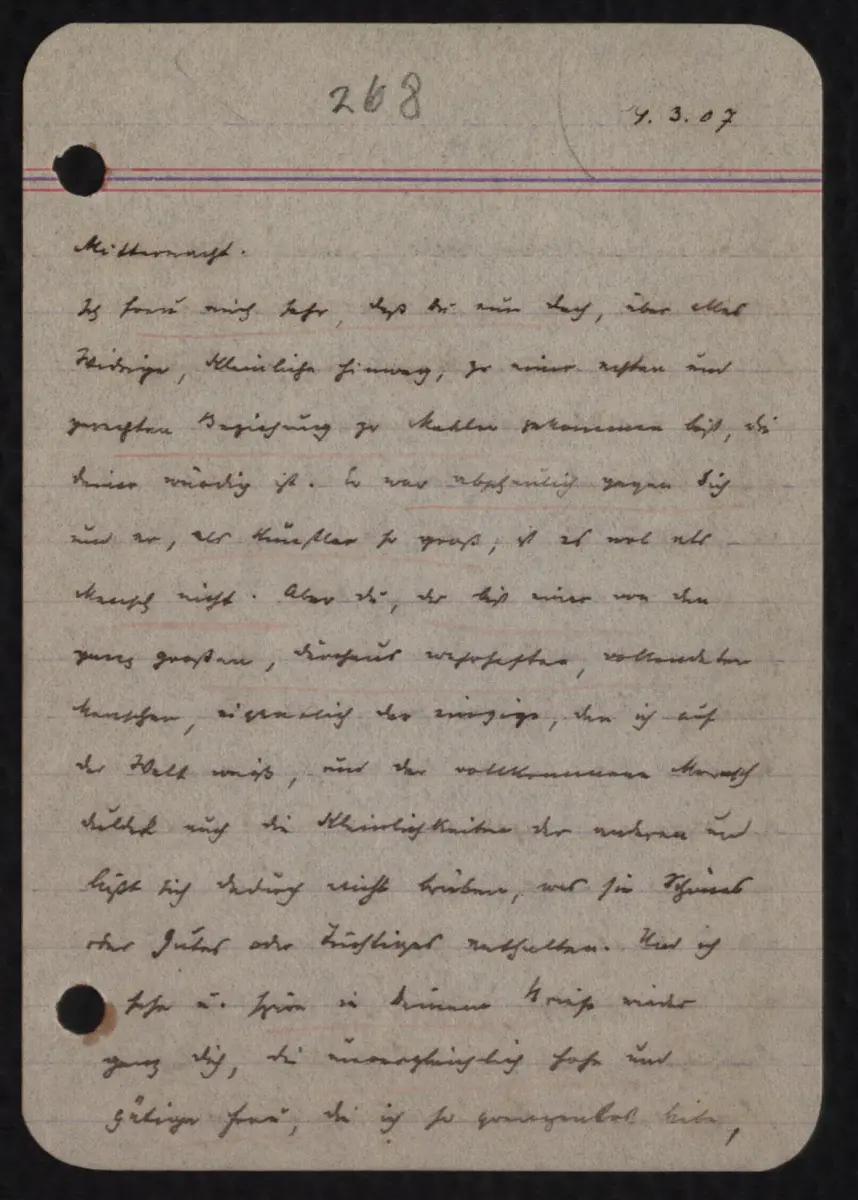 268
4. 3. 07
Mitternacht.
Ich freu mich sehr, daß du nun doch, über alles
Widrige, Kleinliche hinweg, zu einer echten und
gerechten Beziehung zu Mahler gekommen bist, die
deiner würdig ist. Er war abscheulich gegen dich
und er, als Künstler so groß, ist es wol als
Mensch nicht. Aber du, du bist einer von den
ganz großen, durchaus wahrhaften, vollendeten
Menschen, eigentlich der einzige, den ich auf
der Welt weiß, und der vollkommene Mensch
duldet auch die Kleinlichkeiten der anderen und
läßt sich dadurch nicht trüben, was sie Schönes
oder Gutes oder Tüchtiges enthalten. Und ich
sehe u. spüre in deinem Briefe wieder
ganz dich, die unvergleichlich hohe und
gütige Frau, die ich so grenzenlos liebe,